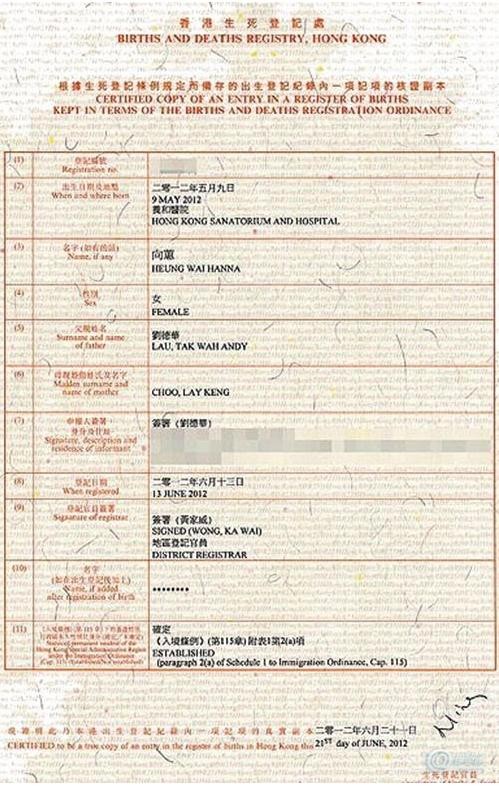 香港生死登記處
BIRTHS AND DEATHS REGISTRY, HONG KONG
根據生死登記條例規定所備存的出生登記紀錄內一項記項的核證副本
CERTIFIED COPY OF AN ENTRY IN A REGISTER OF BIRTHS
KEPT IN TERMS OF THE BIRTHS AND DEATHS REGISTRATION ORDINANCE
(1) 登記編號
Registration no.
(2) 出生日期及地點
When and where born
二零一二年五月九日
9 MAY 2012
養和醫院
HONG KONG SANATORIUM AND HOSPITAL
(3) 名字(如有的話)
Name, if any
向蕙
HEUNG WAI HANNA
(4) 性別
Sex
女
FEMALE
(5) 父親姓名
Surname and name
of father
劉德華
LAU, TAK WAH ANDY
(6)
Maiden surname and
name of mother
CHOO, LAY KENG
(7)
Signature, description and
residence of informant
簽署 (劉德華)
(8) 登記日期
When registered
二零一二年六月十三日
13 JUNE 2012
(9) 登記官簽署
Signature of registrar
簽署 (黃家威)
SIGNED (WONG, KA WAI)
地區登記官員
DISTRICT REGISTRAR
(10) 名字
(如在出生登記後加上)
Name, if added
after registration of birth
••••••••
(11)
Hong Kong Special Administrative Region
under the Immigration Ordinance
(Cap. 115) (Established/Not established)
確定
《入境條例》(第115章) 附表1第2(a)項
ESTABLISHED
(paragraph 2(a) of Schedule 1 to Immigration Ordinance, Cap. 115)
現證明此乃本港出生登記紀錄內一項記項的真實副本 二零一二年六月二十一日
CERTIFIED to be a true copy of an entry in the register of births in Hong Kong this 21ST day of JUNE, 2012
生死登記官